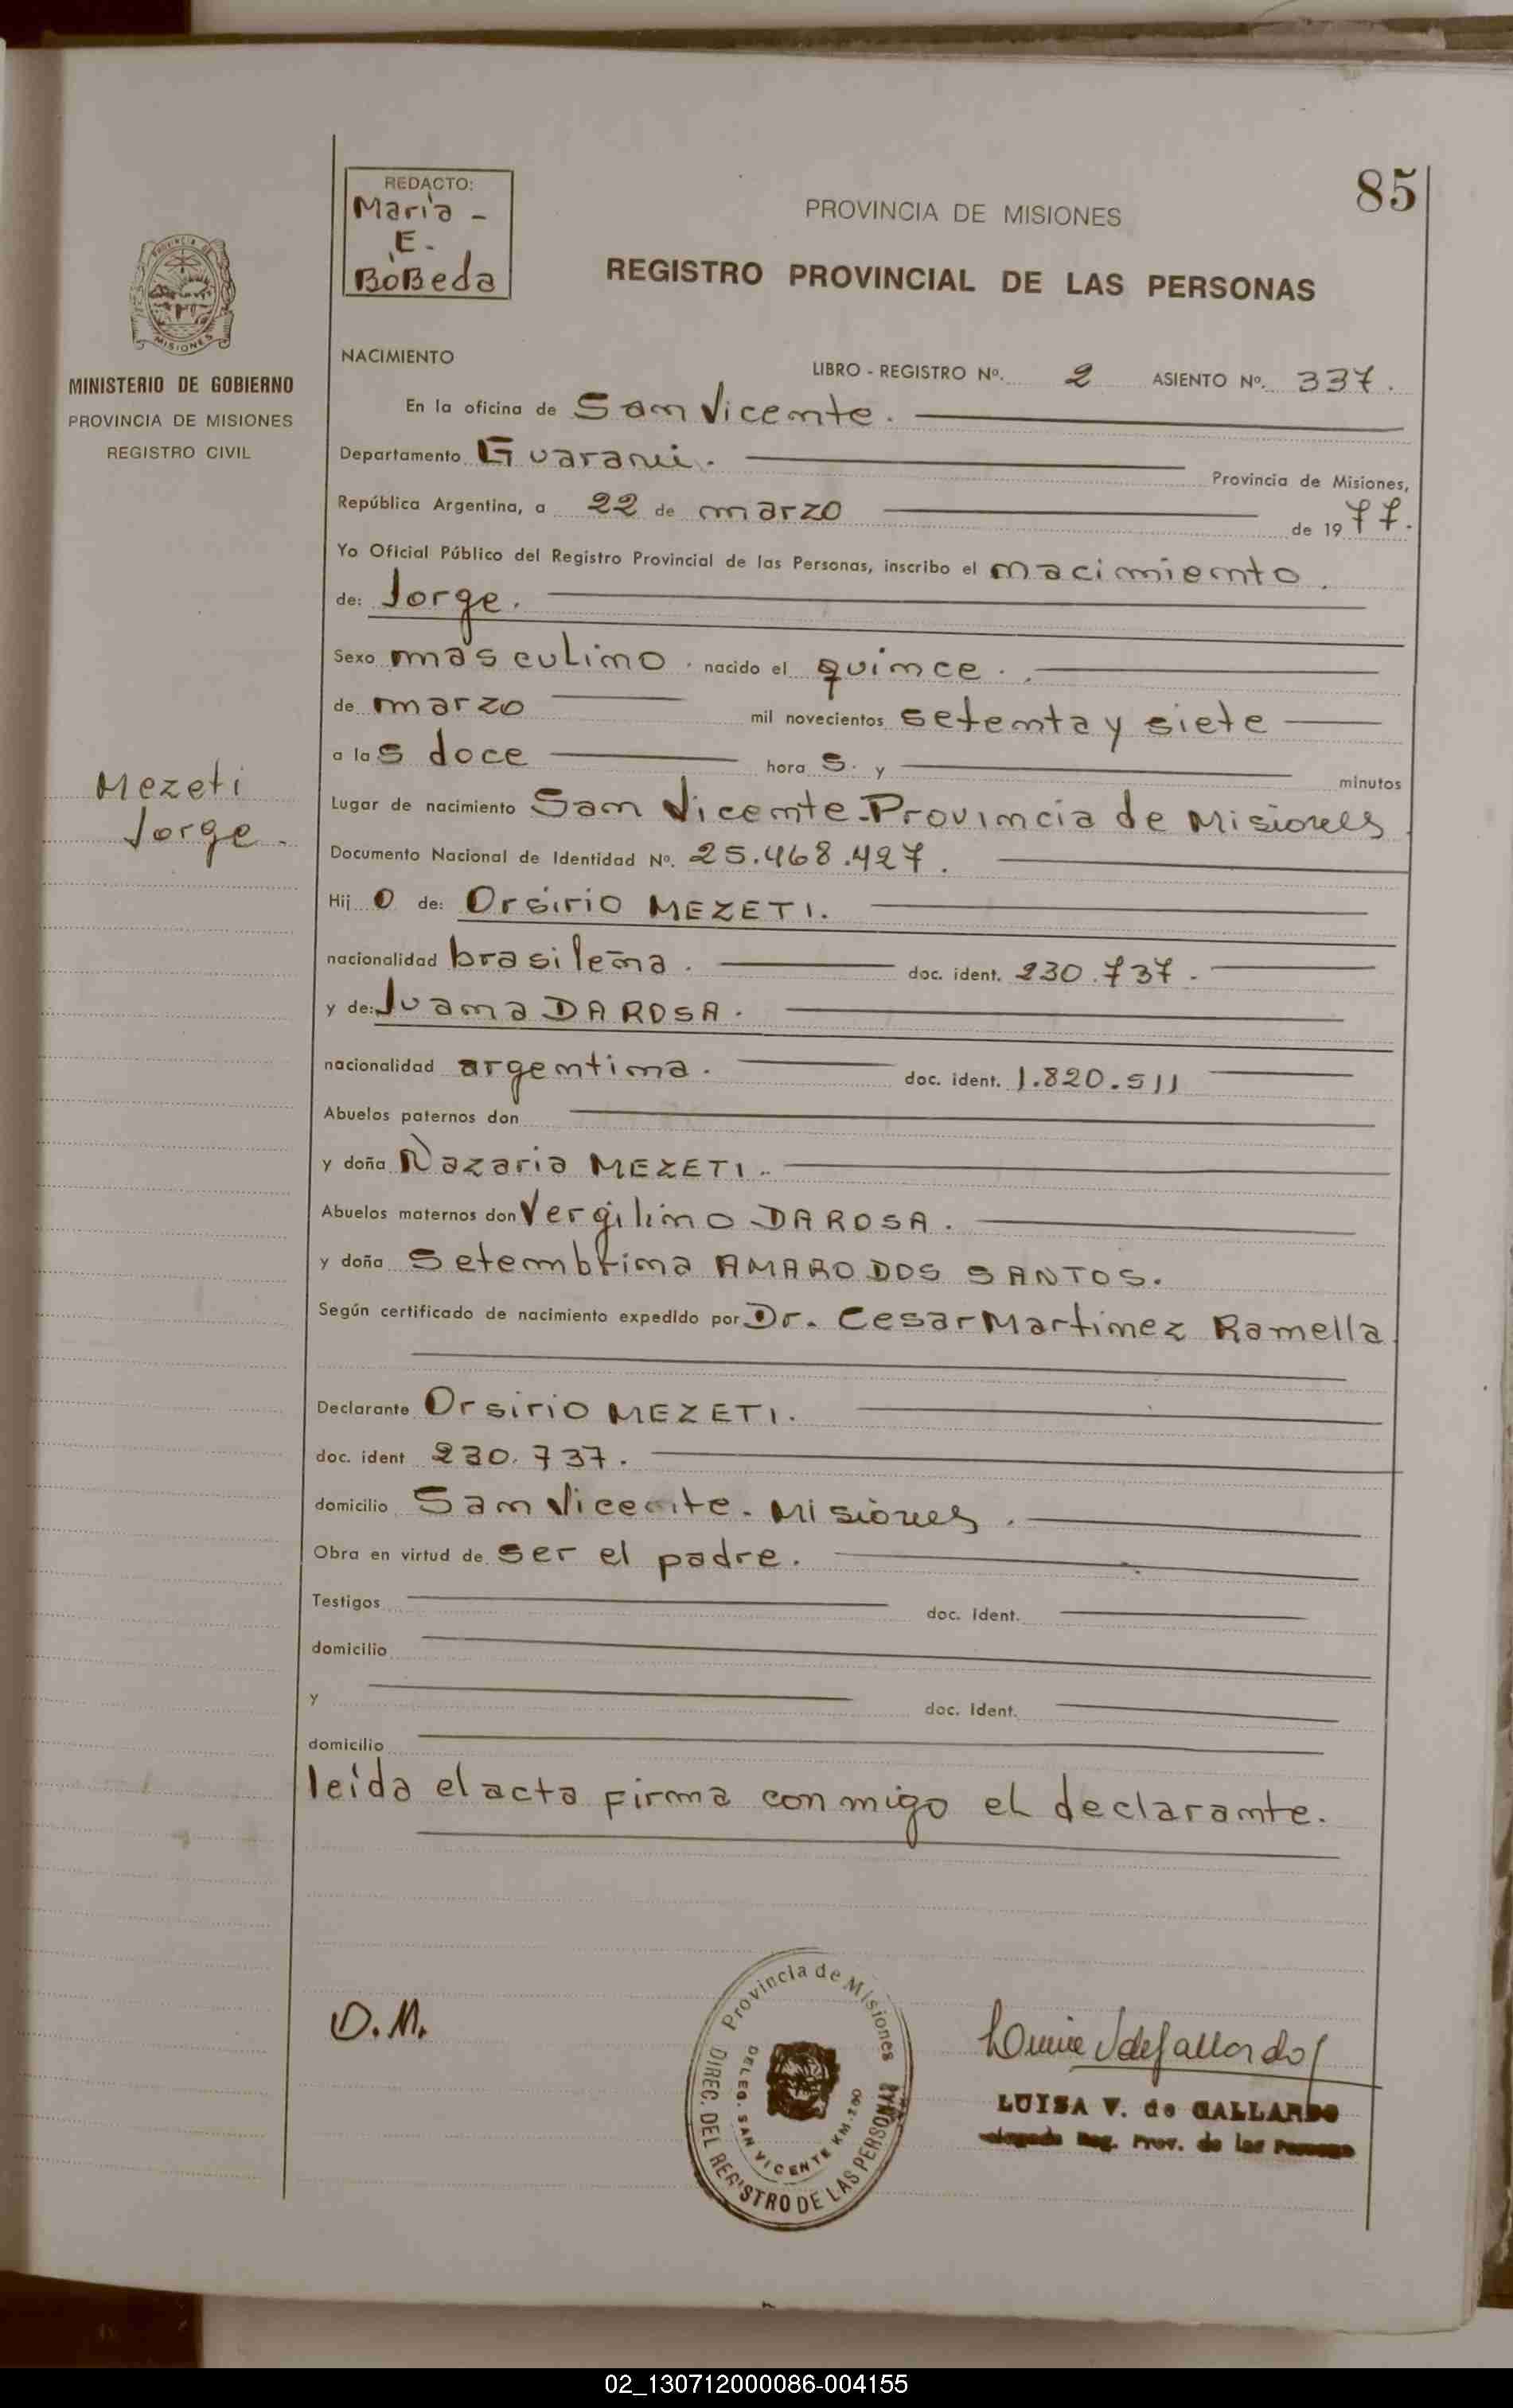 85
REDACTO:
Maria -
E.
BoBeda
PROVINCIA DE MISIONES
REGISTRO PROVINCIAL DE LAS PERSONAS
MISIONES
MINISTERIO DE GOBIERNO
PROVINCIA DE MISIONES
REGISTRO CIVIL
NACIMIENTO
LIBRO - REGISTRO Nº. 2 ASIENTO Nº. 337.
En la oficina de San Vicente.
Departamento Guarani. Provincia de Misiones,
República Argentina, a 22 de marzo de 1977.
Yo Oficial Público del Registro Provincial de las Personas, inscribo el nacimiento.
de: Jorge.
Sexo masculino. nacido el quince.
de marzo mil novecientos setenta y siete
a las doce horas. y minutos
Mezeti
Jorge.
Lugar de nacimiento San Vicente-Provincia de Misiones
Documento Nacional de Identidad Nº. 25.468.427.
Hijo de: Orsirio MEZETI.
nacionalidad brasileña. doc. ident. 230.737.
y de: Juana DA ROSA.
nacionalidad argentina. doc. ident. 1.820.511
Abuelos paternos don
y doña Nazaria MEZETI.
Abuelos maternos don Vergilino DA ROSA.
y doña Setembrina AMARO DOS SANTOS.
Según certificado de nacimiento expedido por Dr. Cesar Martinez Ramella
Declarante Orsirio MEZETI.
doc. ident 230.737.
domicilio San Vicente. Misiones.
Obra en virtud de ser el padre.
Testigos doc. Ident.
domicilio
y doc. Ident.
domicilio
leida el acta firma conmigo el declarante.
O.M.
Provincia de Misiones
DIREC. DEL REGISTRO DE LAS PERSONAS
DELEG. SAN VICENTE KM. 200
LUISA V. de GALLARDO
Reg. Prov. de las Personas
02_130712000086-004155